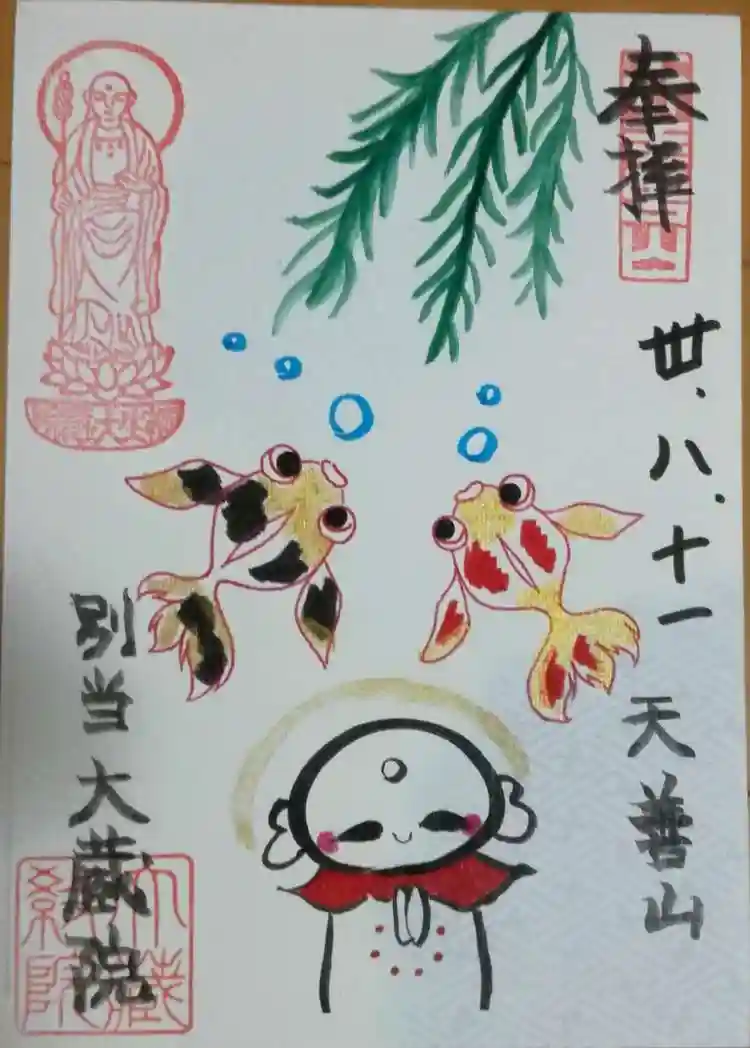 奉拝
卅、八、十一
天善山
別当 大蔵院